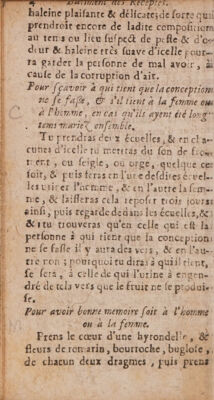 Bâtiment des Receptes.
haleine plaisante & délicate; de sorte qui
prendroit encore de ladite composition
au tems ou lieu suspect de peste & d'o-
deur & haleine très suave d'icelle pour-
ra garder la personne de mal avoir, à
cause de la corruption d'air.
Pour sçavoir à qui tient que la conception
ne se fasse, & s'il tient à la femme ou
à l'homme, en cas qu'ils ayent été long
tems mariez ensemble.
Tu prendras deux écuelles, & en cha-
cunes d'icelle tu metteras du son de fro-
ment, ou seigle, ou orge, quelque ce
soit, & puis feras en l'une desdites écuel-
les uriner l'homme, & en l'autre la fem-
me, & laisseras cela reposer trois jours
ainsi, puis regarde dedans les écuelles, &
& tu trouveras qu'en celle qui est la
personne à qui tient que la conception
ne se fasse il y aura des vers, & en l'au-
tre non; pourquoi tu diras à qui il tient,
se sera, à celle de qui l'urine à engen-
dré de tels vers que le fruit ne se produi-
se.
Pour avoir bonne memoire soit à l'homme
ou à la femme.
Prens le cœur d'une hyrondelle, &
fleurs de romarin, bourroche, buglose,
de chacun deux dragmes, puis prens